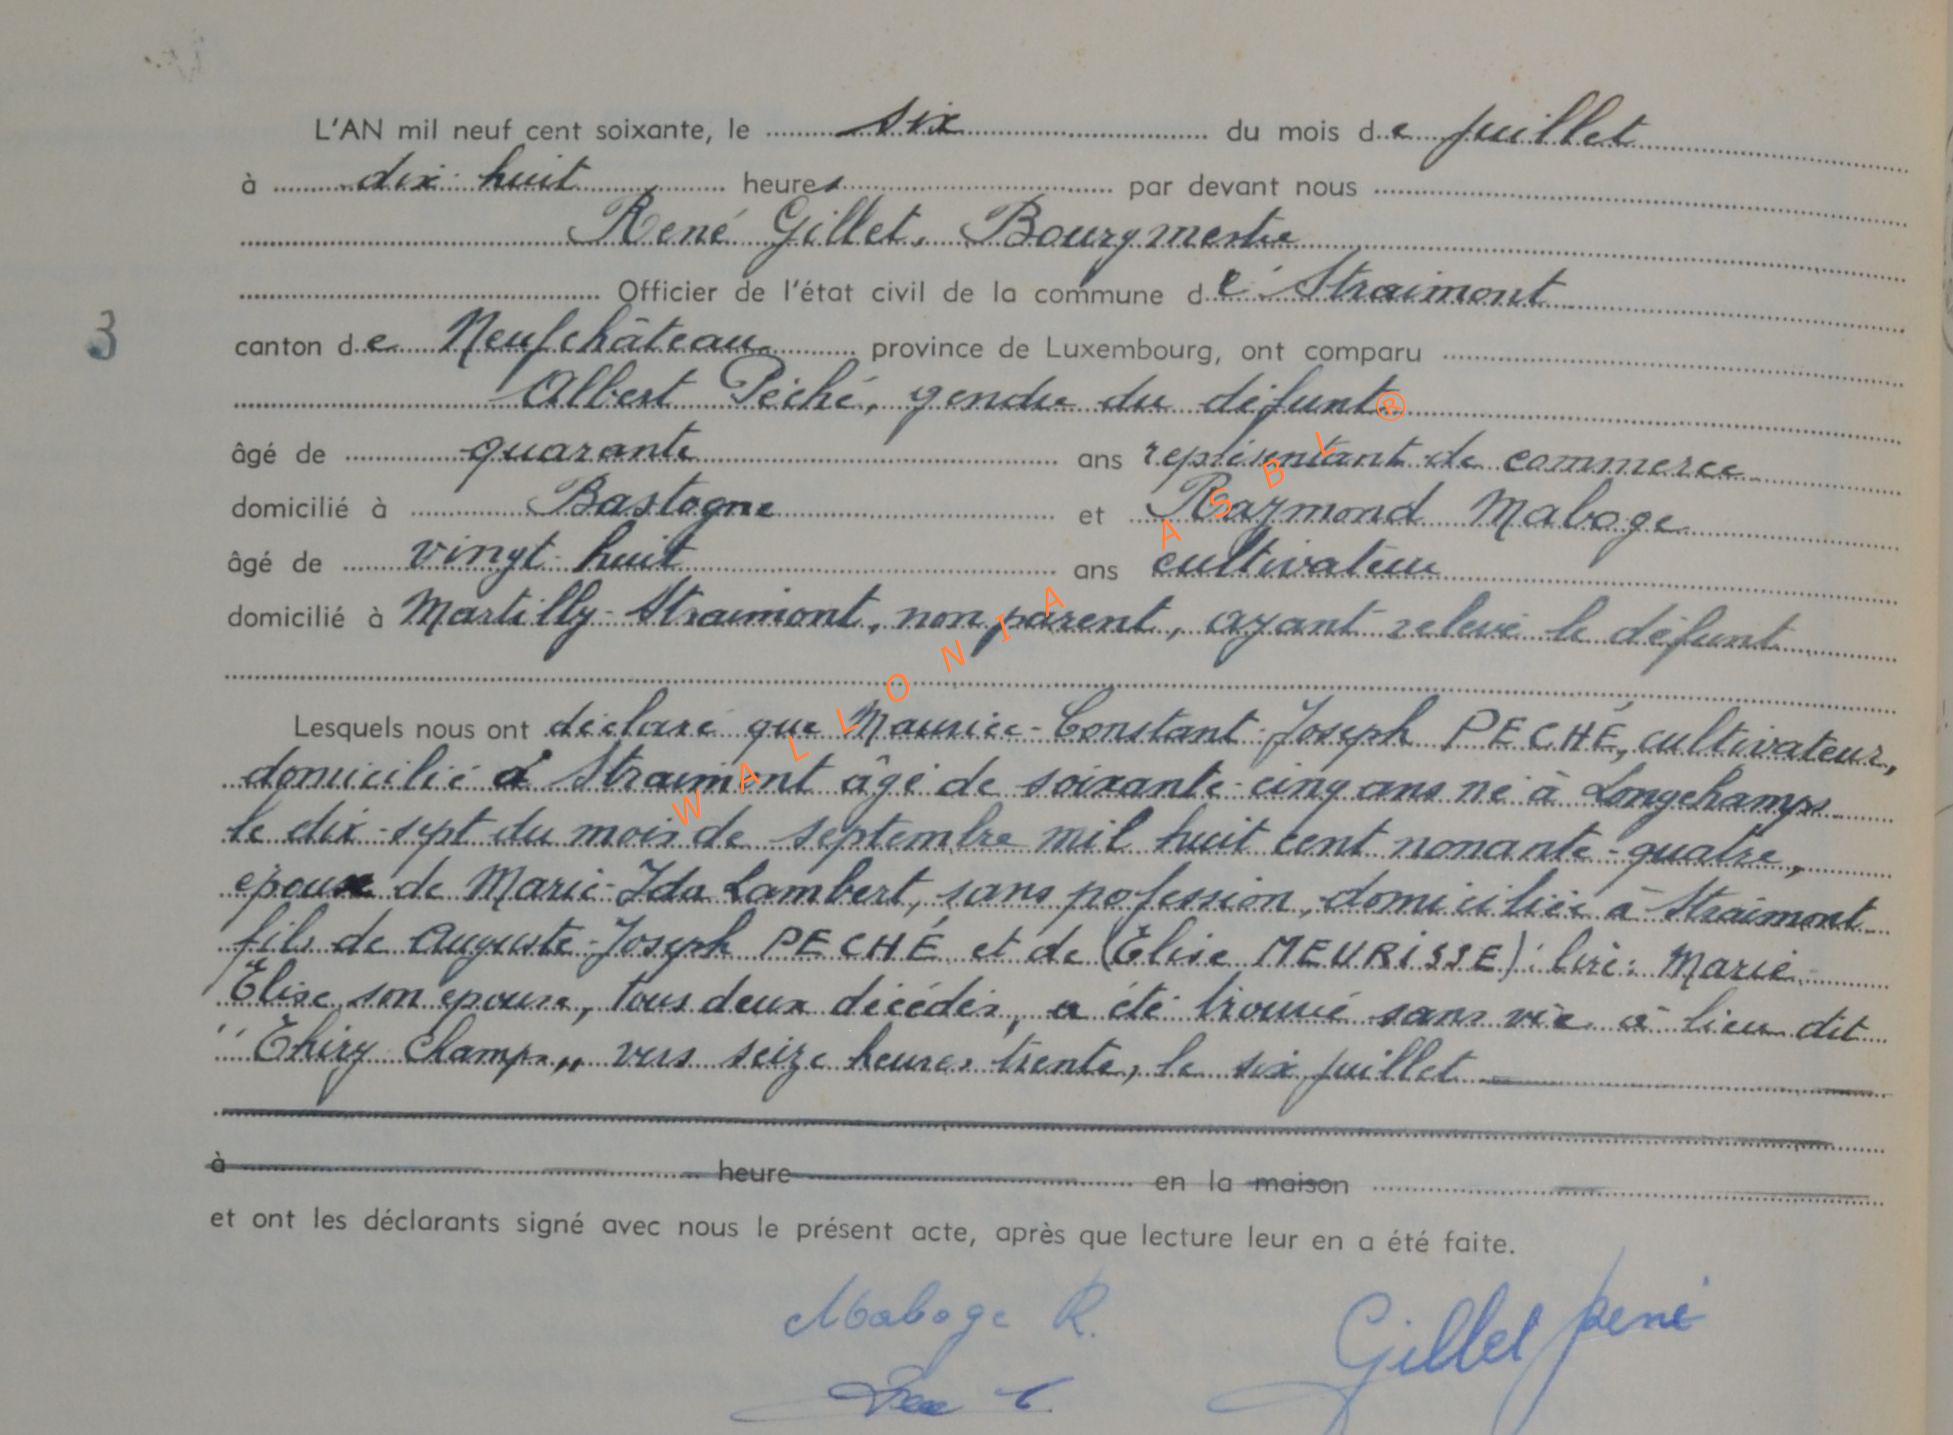 L'AN mil neuf cent soixante, le six du mois de juillet
à dix-huit heures par devant nous
René Gillet, Bourgmestre
Officier de l'état civil de la commune de Straimont
3
canton de Neufchâteau province de Luxembourg, ont comparu
Albert Péché, gendre du défunt
âgé de quarante ans représentant de commerce
domicilié à Bastogne et Raymond Maboge
âgé de vingt-huit ans cultivateur
domicilié à Martilly-Straimont, non parent, ayant relevé le défunt
WALLONIA ASBL ®
Lesquels nous ont déclaré que Maurice-Constant-Joseph PECHÉ, cultivateur,
domicilié à Straimont âgé de soixante-cinq ans né à Longchamps
le dix-sept du mois de septembre mil huit cent nonante-quatre,
époux de Marie-Ida Lambert, sans pofession, domiciliée à Straimont
fils de Auguste-Joseph PECHÉ et de (Élise MEURISSE): lire: Marie-
Élise son épouse, tous deux décédés, a été trouvé sans vie à lieu dit
"Thiry Champs" vers seize heures trente, le six juillet
à heure en la maison
et ont les déclarants signé avec nous le présent acte, après que lecture leur en a été faite.
Maboge R.
Gillet René